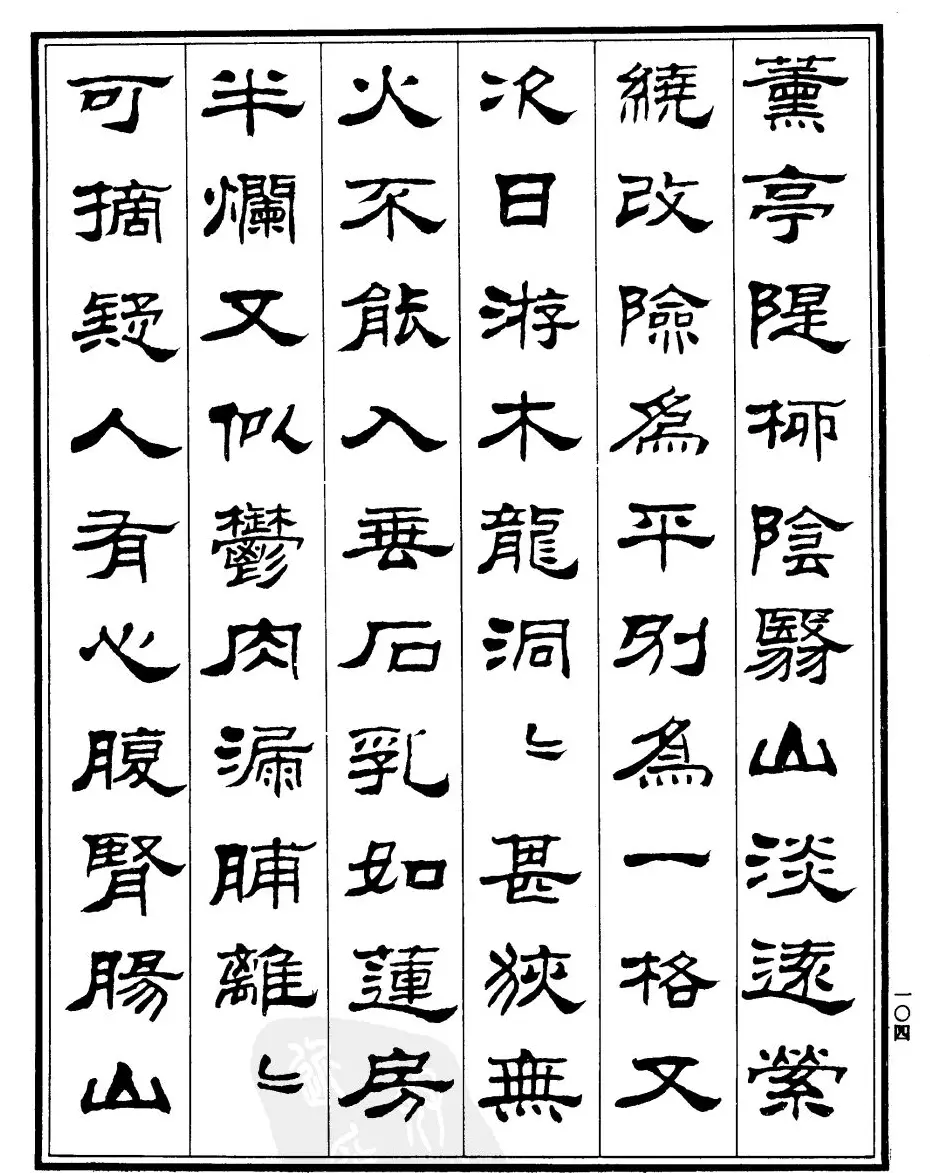 薰亭隄柳陰翳山淡遠縈
繞改險為平別為一格又
次日游木龍洞〻甚狹無
火不能入垂石乳如蓮房
半爛又似鬱肉漏脯離〻
可摘疑人有心腹腎腸山
一〇四